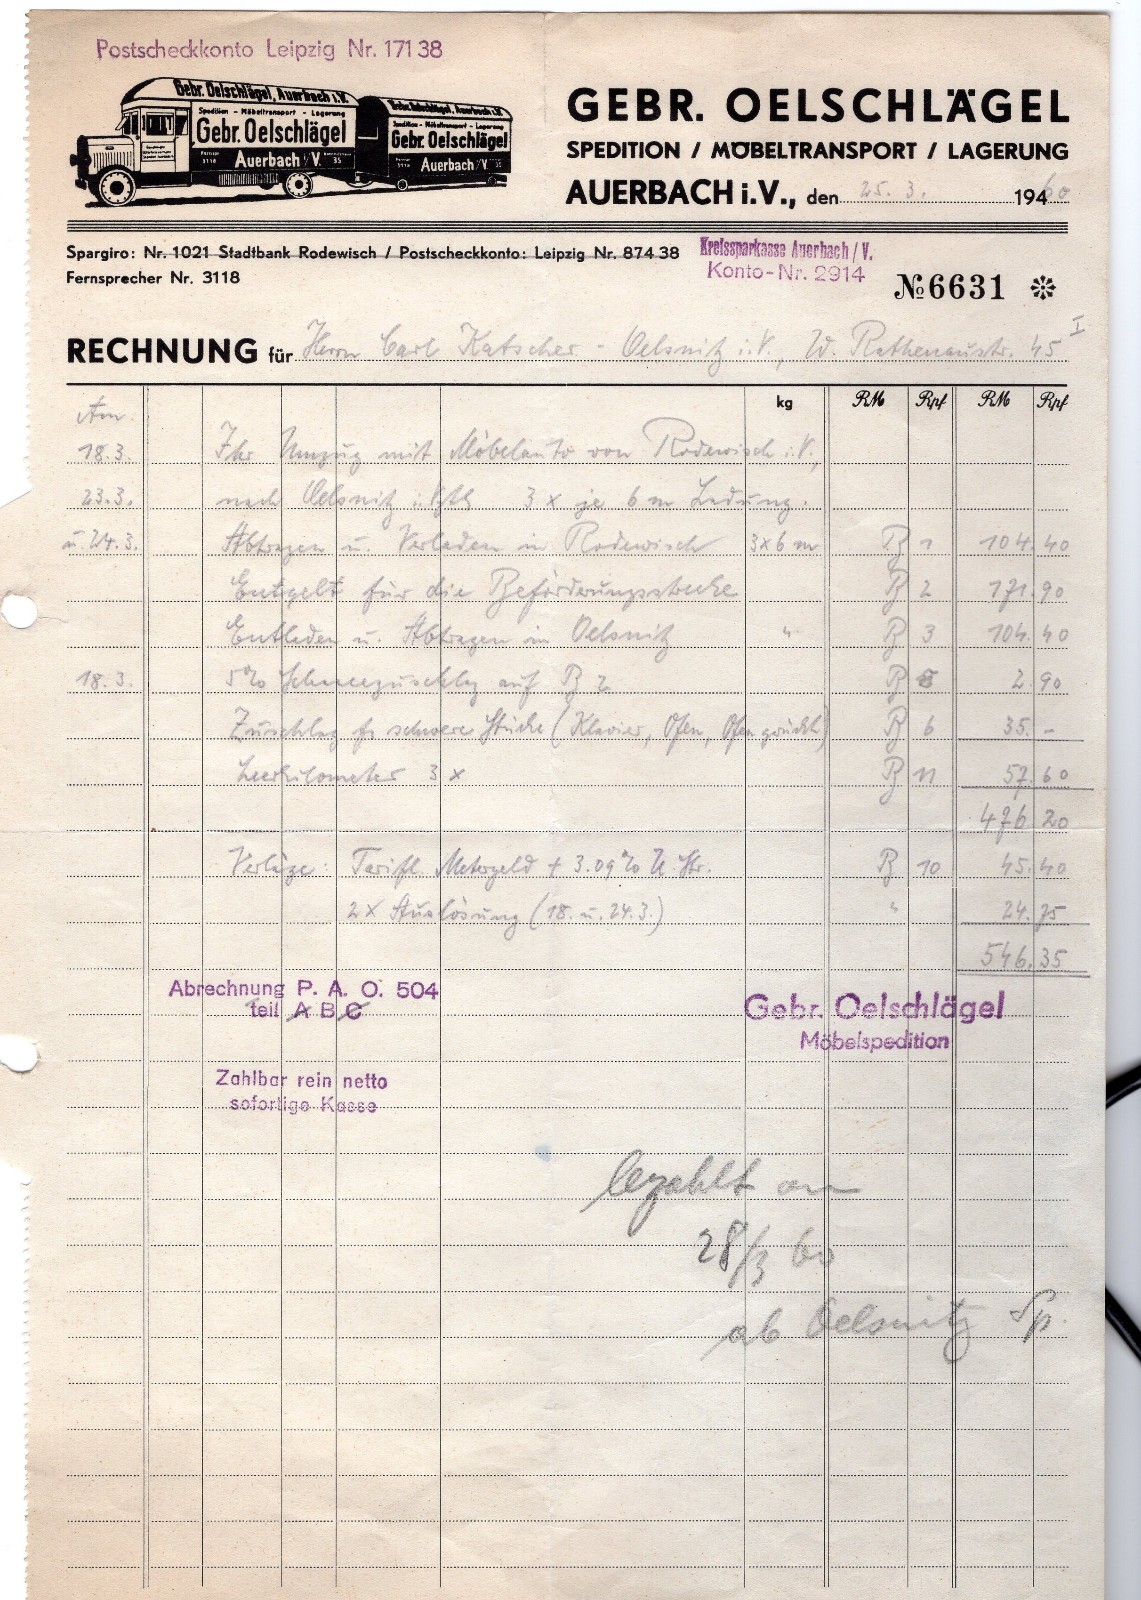 Postscheckkonto Leipzig Nr. 171 38
Gebr. Oelschlägel, Auerbach i.V.
Spedition - Möbeltransport - Lagerung
Gebr. Oelschlägel
Auerbach i/V.
Gebr. Oelschlägel, Auerbach i.V.
Spedition - Möbeltransport - Lagerung
Gebr. Oelschlägel
Auerbach i/V.
GEBR. OELSCHLÄGEL
SPEDITION / MÖBELTRANSPORT / LAGERUNG
AUERBACH i.V., den 25. 3. 194 60
Spargiro: Nr. 1021 Stadtbank Rodewisch / Postscheckkonto: Leipzig Nr. 874 38
Kreissparkasse Auerbach / V.
Konto-Nr. 2914
Fernsprecher Nr. 3118
№ 6631
RECHNUNG für Herrn Carl Katscher - Oelsnitz i.V., W. Rathenaustr. 45 I
kg RM Rpf RM Rpf
Am
18.3. Ihr Umzug mit Möbelauto von Rodewisch i.V.,
23.3. nach Oelsnitz i. Vgtl 3 x je 6 m Ladung.
u. 24.3. Abtragen u. Verladen in Rodewisch 3x6 m B 1 104.40
Entgelt für die Beförderungsstrecke B 2 171.90
Entladen u. Abtragen in Oelsnitz " B 3 104.40
18.3. 5% Schneezuschlag auf B 2 B 2.90
Zuschlag f. schwere Stücke (Klavier, Ofen, Ofen B 6 35.-
Leerkilometer 3 x B 11 57.60
476.20
Verläge: Tarifl. Metergeld + 3.09% U. Str. B 10 45.40
2x Auslösung (18. u. 24.3.) " 24.75
546.35
Abrechnung P. A. O. 504
teil A B C
Gebr. Oelschlägel
Möbelspedition
Zahlbar rein netto
sofortige Kasse
bezahlt am
28/3 60
ab Oelsnitz Sp.